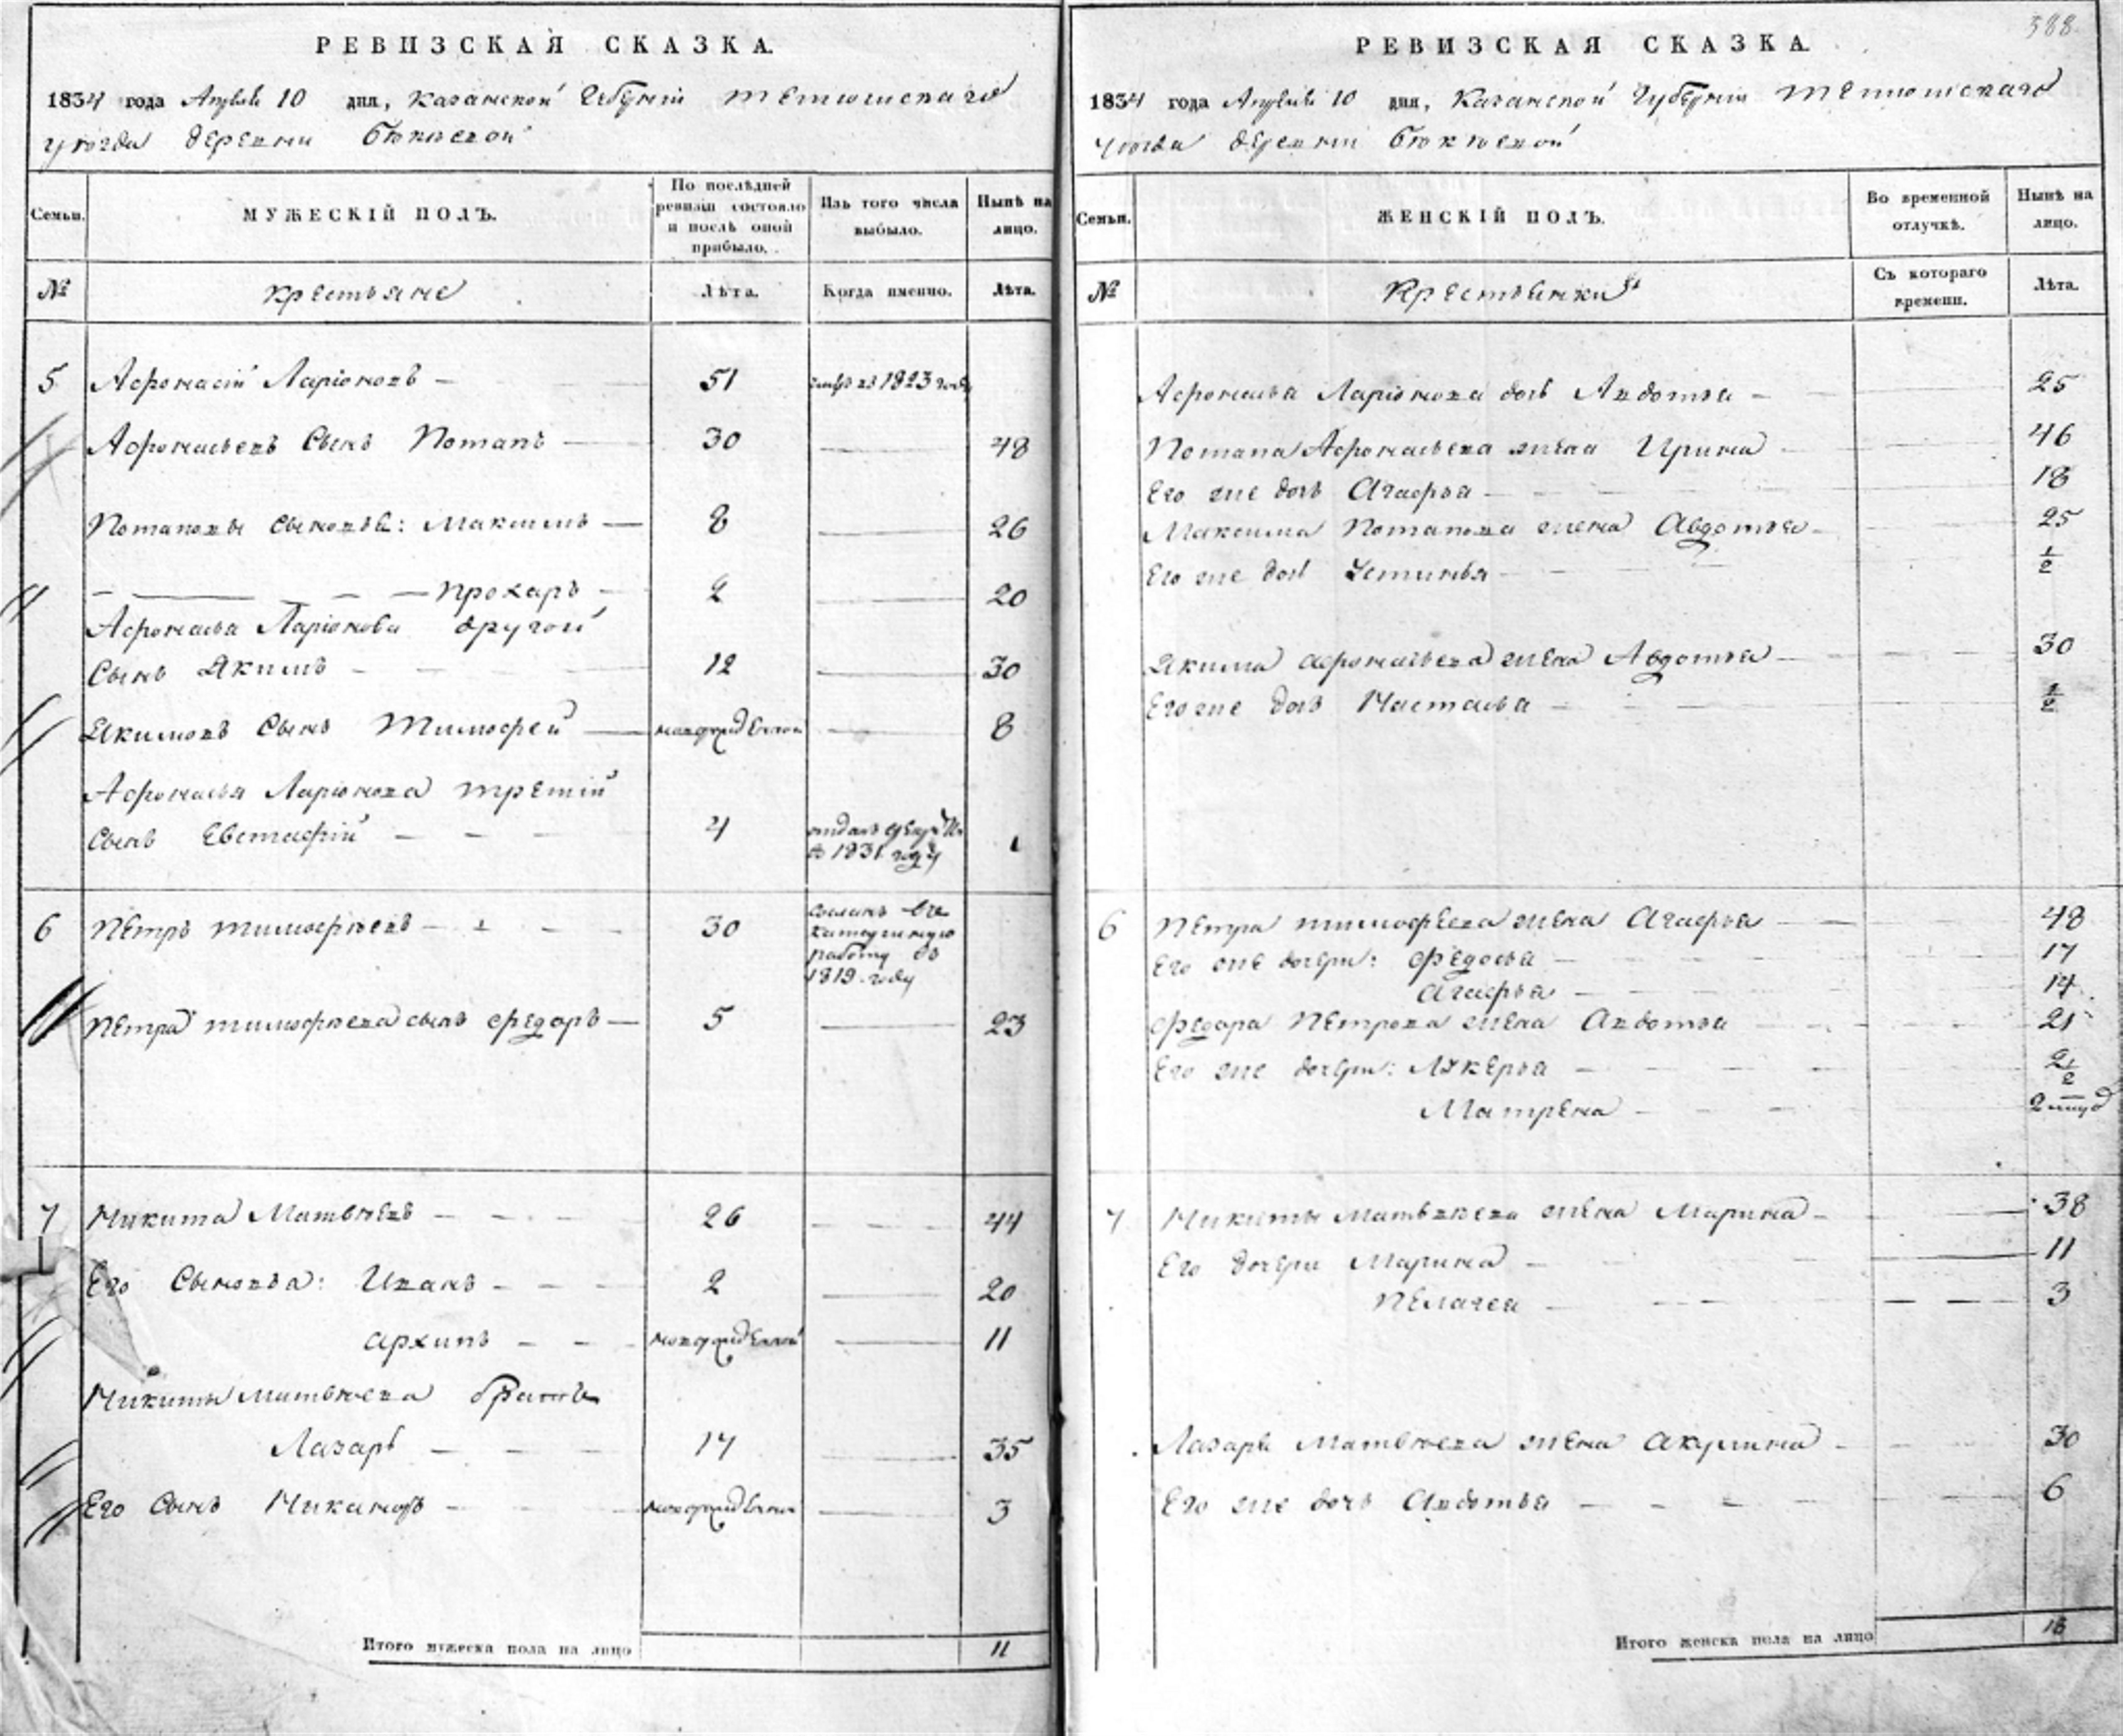 РЕВИЗСКАЯ СКАЗКА.
1834 года Апреля 10 дня, Казанской Губерніи Тетюшскаго
уѣзда деревни Бѣкѣевой
Семьи.
МУЖЕСКІЙ ПОЛЪ.
По послѣдней ревизіи состояло и послѣ оной прибыло.
Изъ того числа выбыло.
Нынѣ на лицо.
№
Крестьяне
Лѣта.
Когда именно.
Лѣта.
5 Афонасій Ларіоновъ 51 1823 году
Афонасьевъ Сынъ Потапъ 30 48
Потаповы сыновья: Максимъ 8 26
Прохаръ 2 20
Афонасья Ларіонова другой
Сынъ Якимъ 12 30
Якимовъ Сынъ Тимофей новорожденной 8
Афонасья Ларіонова третій
Сынъ Евстафій 4 отданъ въ 1831 году
6 Петръ тимофѣевъ 30 сосланъ въ каторжную работу въ 1819 году
Петра тимофѣева сынъ федоръ 5 23
7 Никита Матвѣевъ 26 44
Его Сыновья: Иванъ 2 20
архипъ новорожденной 11
Никиты матвѣева братъ
Лазарь 17 35
Его Сынъ Никаноръ новорожденной 3
Итого мужеска пола на лицо 11
388.
РЕВИЗСКАЯ СКАЗКА.
1834 года Апреля 10 дня, Казанской Губерніи Тетюшскаго
уѣзда деревни Бѣкѣевой
Семьи.
ЖЕНСКІЙ ПОЛЪ.
Во временной отлучкѣ.
Нынѣ на лицо.
№
Крестьянки
Съ котораго времени.
Лѣта.
Афонасья Ларіонова дочь Авдотья 25
Потапа Афонасьева жена Ирина 46
Его же дочь Агафья 18
Максима Потапова жена Авдотья 25
Его же дочь Устинья 1/2
Якима афонасьева жена Авдотья 30
Его же дочь Настасья 1/2
6 Петра тимофеева жена Агафья 48
Его же дочери: федосья 17
агафья 14
федора Петрова жена Авдотья 21
Его же дочери: Лукерья 2 1/2
Матрена 2
7 Никиты матвѣева жена Марина 38
Его дочери Марина 11
Пелагея 3
Лазаря Матвѣева жена акулина 30
Его же дочь Авдотья 6
Итого женска пола на лицо 18